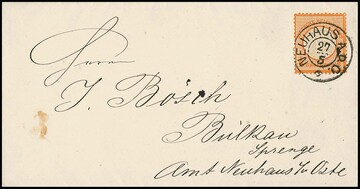 Herrn
J. Bösch
Bülkau
Sprenge
Amt Neuhaus a/Oste
NEUHAUS A.D.O.
27
5